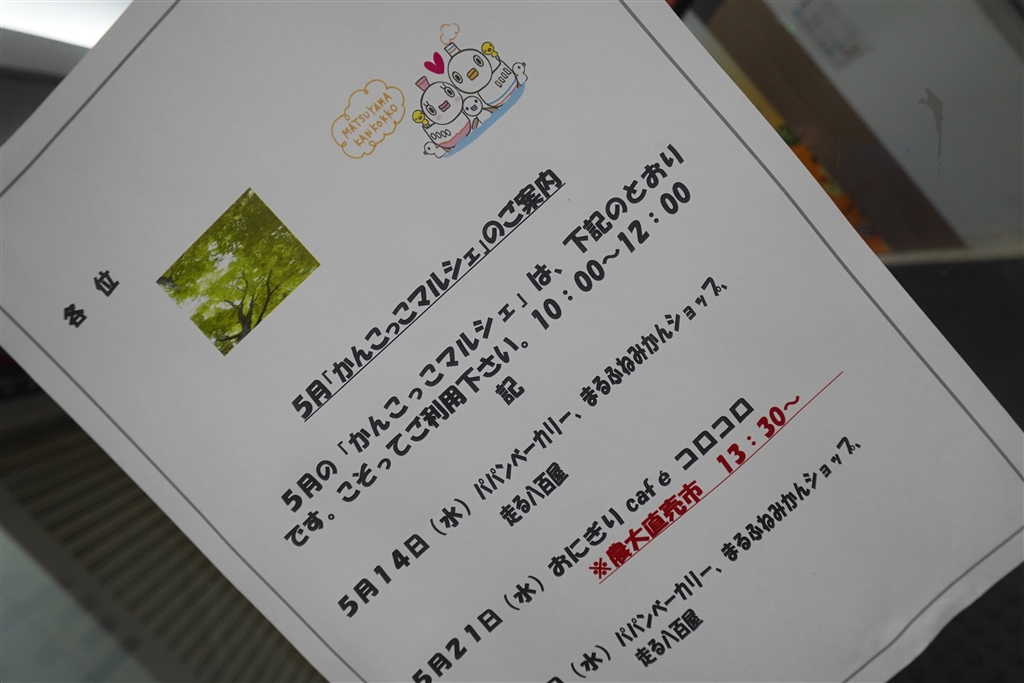 MATSUYAMA
KANKOKKO
各 位
5月「かんこっこマルシェ」のご案内
5月の「かんこっこマルシェ」は、下記のとおり
です。こぞってご利用下さい。10:00～12:00
記
5月14日(水)パパンベーカリー、まるふねみかんショップ、
走る八百屋
5月21日(水)おにぎりcafé コロコロ
※農大直売市 13:30～
(水)パパンベーカリー、まるふねみかんショップ、
走る八百屋